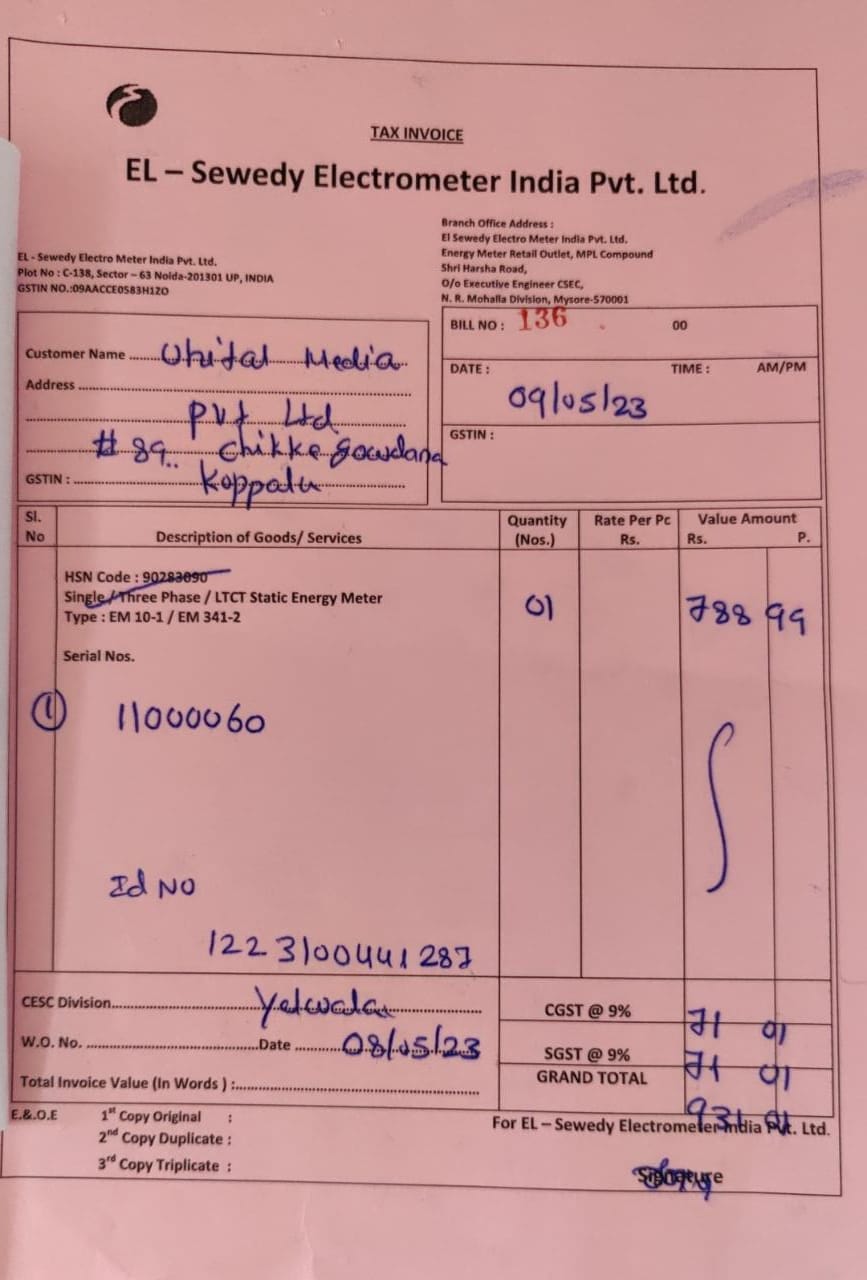 TAX INVOICE
EL – Sewedy Electrometer India Pvt. Ltd.
EL - Sewedy Electro Meter India Pvt. Ltd.
Plot No : C-138, Sector – 63 Noida-201301 UP, INDIA
GSTIN NO.:09AACCE0583H1ZO
Branch Office Address :
El Sewedy Electro Meter India Pvt. Ltd.
Energy Meter Retail Outlet, MPL Compound
Shri Harsha Road,
O/o Executive Engineer CSEC,
N. R. Mohalla Division, Mysore-570001
Customer Name ........ Media
Address
Pvt Ltd
# 89.. Chikkegowdana
GSTIN : Koppalu
BILL NO : 136 00
DATE : TIME : AM/PM
09/05/23
GSTIN :
Sl. No Description of Goods/ Services Quantity (Nos.) Rate Per Pc Rs. Value Amount Rs. P.
HSN Code : 90283090
Single / Three Phase / LTCT Static Energy Meter 01 788 99
Type : EM 10-1 / EM 341-2
Serial Nos.
① 11000060
Id NO
1223100441287
CESC Division Yelwala
W.O. No. Date 08/05/23
Total Invoice Value (In Words ) :
CGST @ 9% 71 01
SGST @ 9% 71 01
GRAND TOTAL
931
E.&.O.E 1st Copy Original :
2nd Copy Duplicate :
3rd Copy Triplicate :
For EL – Sewedy Electrometer India Pvt. Ltd.
Signature